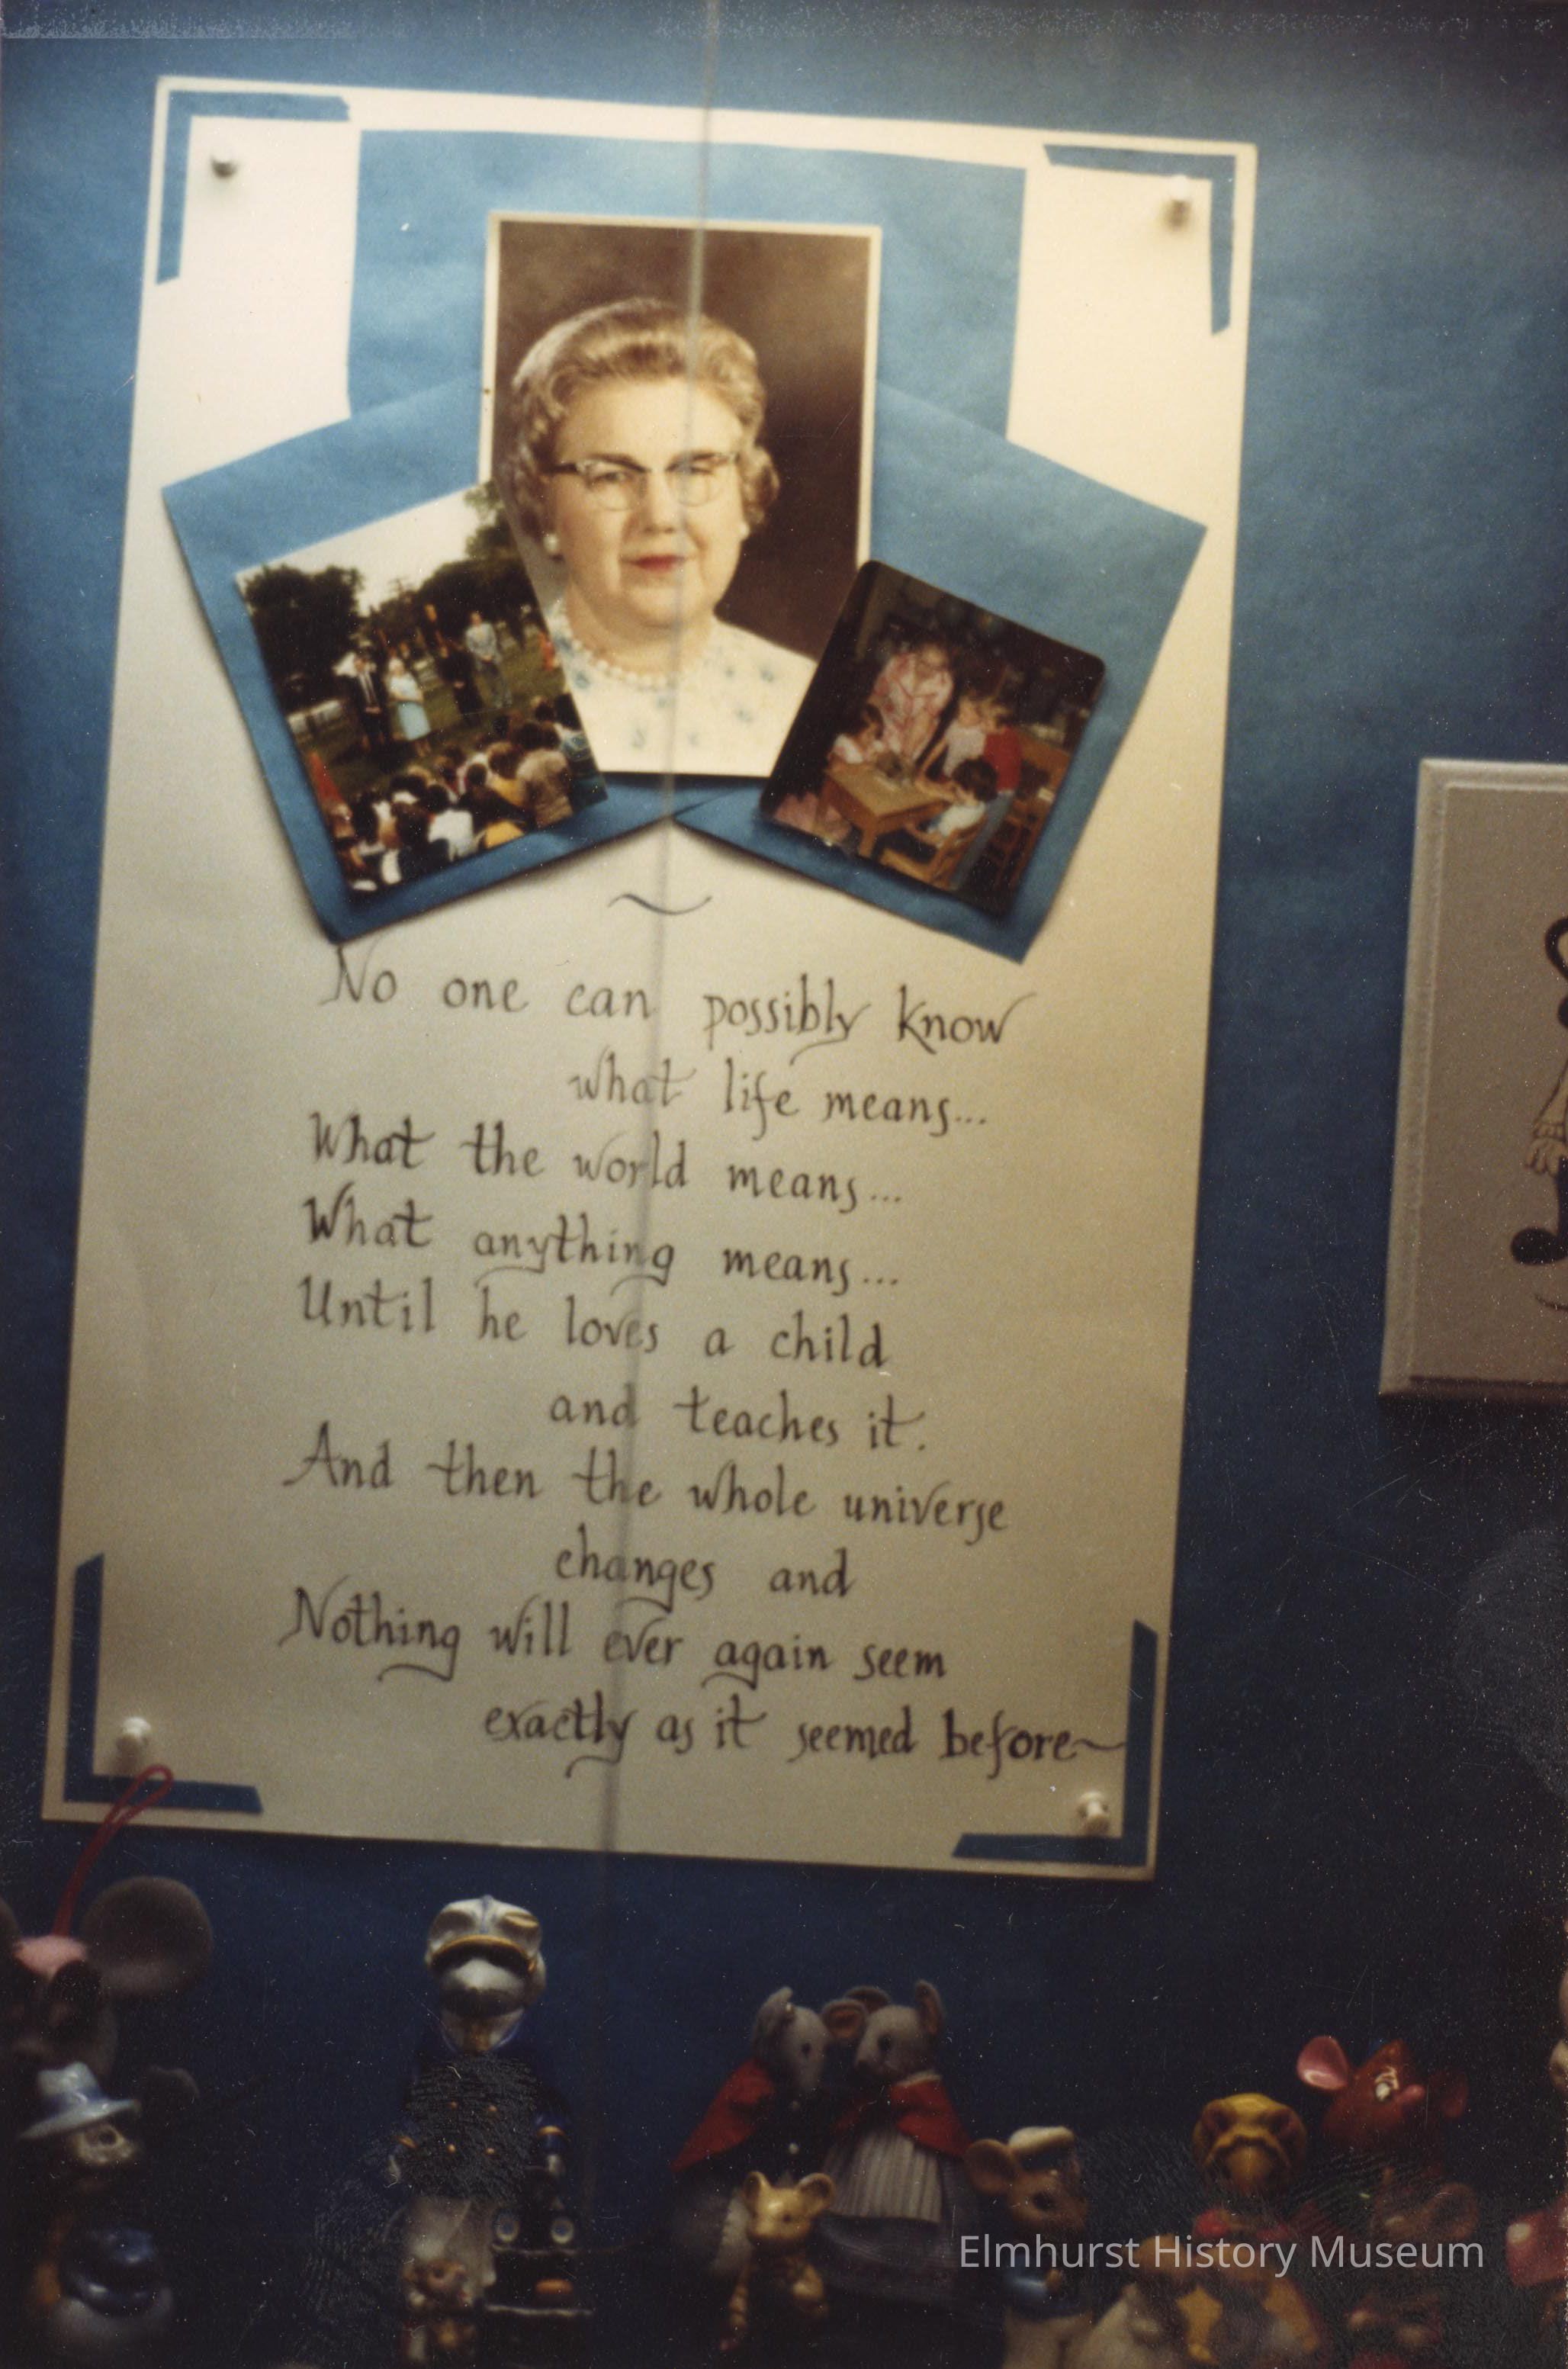 No one can possibly know
what life means...
What the world means...
What anything means...
Until he loves a child
and teaches it.
And then the whole universe
changes and
Nothing will ever again seem
exactly as it seemed before~
Elmhurst History Museum